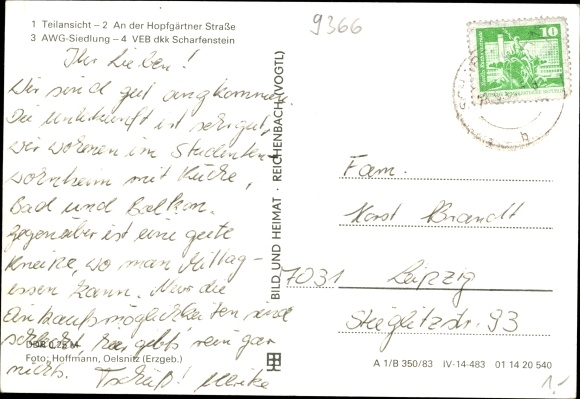 1 Teilansicht – 2 An der Hopfgärtner Straße
3 AWG-Siedlung – 4 VEB dkk Scharfenstein
9366
Ihr Lieben!
Wir sind gut angekommen.
Die Unterkunft ist sehr gut,
wir wohnen im Studenten-
wohnheim mit Küche,
Bad und Balkon.
Gegenüber ist eine gute
Kneipe, wo man Mittag-
essen kann. Nur die
Einkaufsmöglichkeiten sind
schlecht, hier gibt's rein gar
nichts. Tschüß! Ulrike
DDR 0,25 M
Foto: Hoffmann, Oelsnitz (Erzgeb.)
BILD UND HEIMAT · REICHENBACH (VOGTL)
10
Fam.
Horst Brandt
7031 Leipzig
Stieglitzstr. 93
A 1/B 350/83 IV-14-483 01 14 20 540
1,-